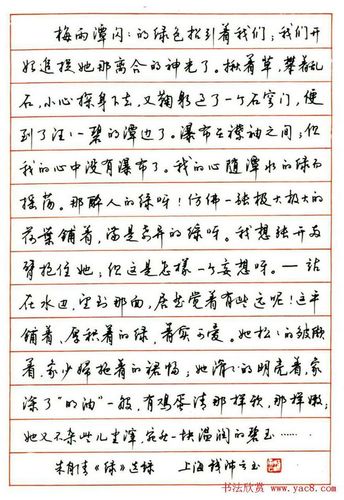 梅雨潭闪：的绿色招引着我们；我们开
始追捉她那离合的神光了。揪着草，攀着乱
石，小心探身下去，又鞠躬过了一个石穹门，便
到了汪：一碧的潭边了。瀑布在襟袖之间；但
我的心中没有瀑布了。我的心随潭水的绿而
摇荡。那醉人的绿呀！仿佛一张极大极大的
荷葉铺着，满是奇异的绿呀。我想张开两
臂抱住她；但这是怎样一个妄想呀。—站
在水边，望到那面，居然觉着有些远呢！这平
铺着、厚积着的绿，着实可爱。她松：的皱缬
着，象少婦拖着的裙幅；她滑：的明亮着，象
涂了“明油”一般，有鸡蛋清那样软，那样嫩；
她又不杂些儿尘滓，宛然一块温润的碧玉……
朱自清《绿》选抄 上海 钱沛云书
书法欣赏 www.yac8.com